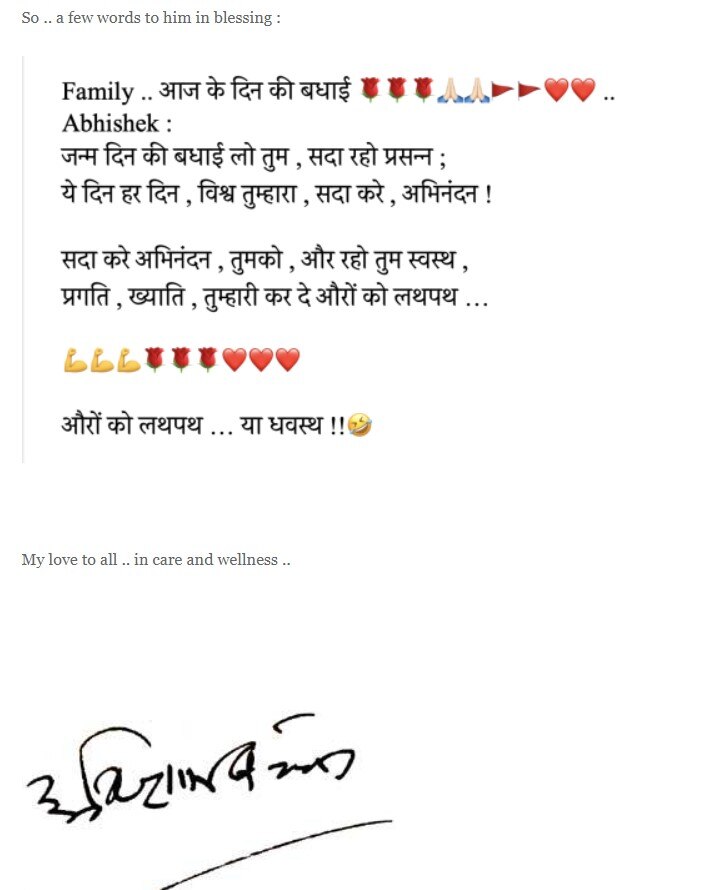 So .. a few words to him in blessing :
Family .. आज के दिन की बधाई 🌹🌹🌹🙏🏻🙏🏻🚩🚩❤️❤️ ..
Abhishek :
जन्म दिन की बधाई लो तुम , सदा रहो प्रसन्न ;
ये दिन हर दिन , विश्व तुम्हारा , सदा करे , अभिनंदन !
सदा करे अभिनंदन , तुमको , और रहो तुम स्वस्थ ,
प्रगति , ख्याति , तुम्हारी कर दे औरों को लथपथ ...
💪💪💪🌹🌹🌹❤️❤️❤️
औरों को लथपथ ... या धवस्थ !!🤣
My love to all .. in care and wellness ..